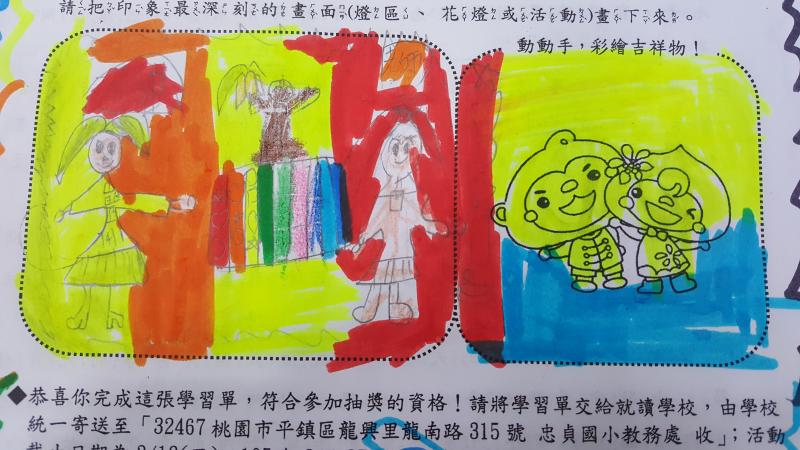 請把印象最深刻的畫面(燈區、花燈或活動)畫下來。
動動手，彩繪吉祥物！
◆恭喜你完成這張學習單，符合參加抽獎的資格！請將學習單交給就讀學校，由學校
統一寄送至「32467桃園市平鎮區龍興里龍南路315號 忠貞國小教務處 收」；活動